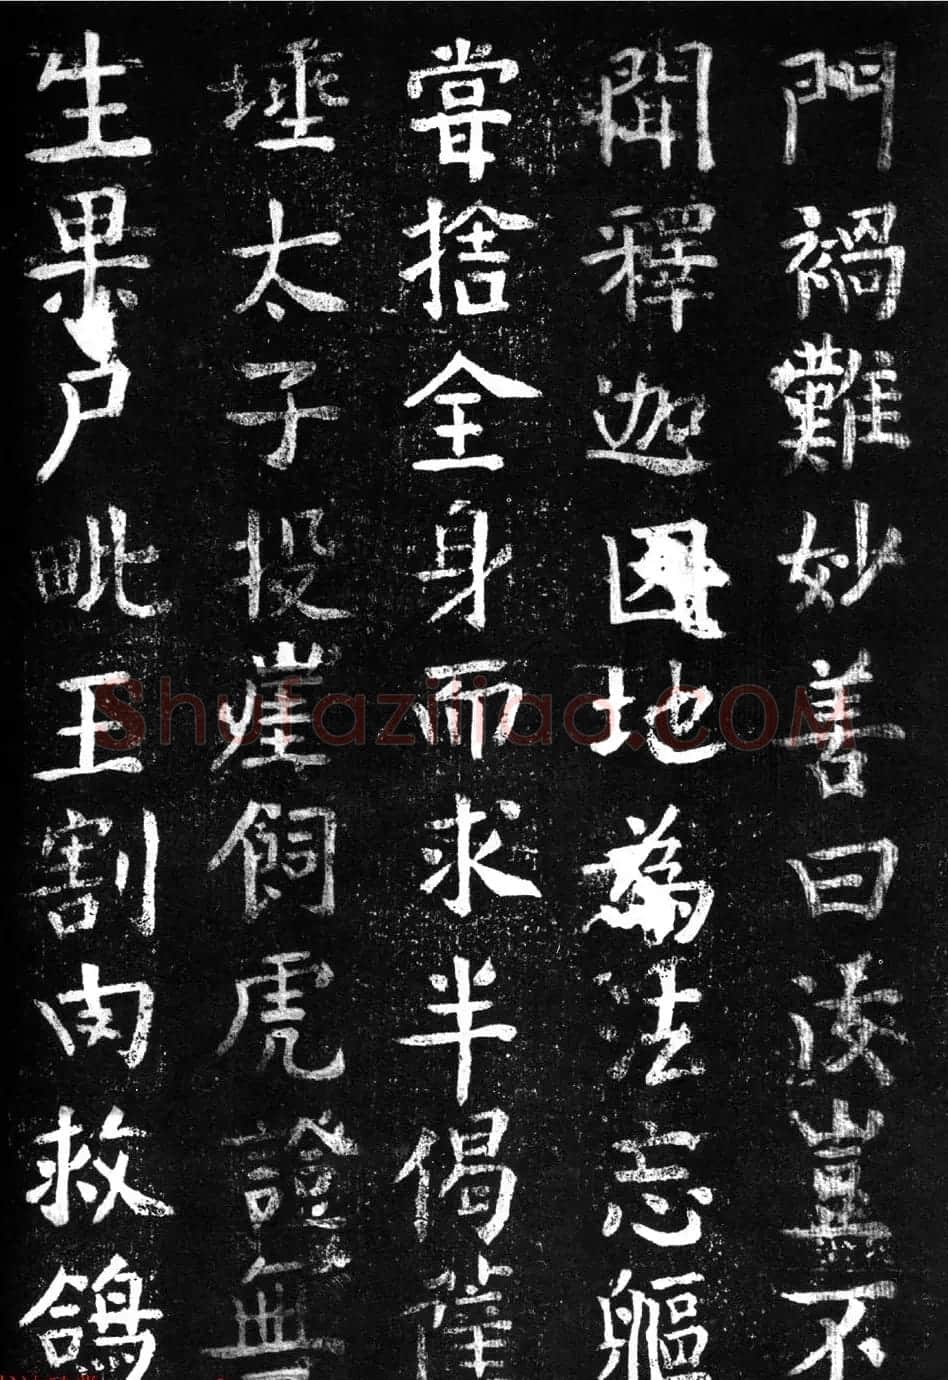 門禍難妙善曰汝豈不
聞釋迦因地為法忘軀
嘗捨全身而求半偈薩
埵太子投崖飼虎證無
生果尸毗王割肉救鴿
Shufaziliao.COM